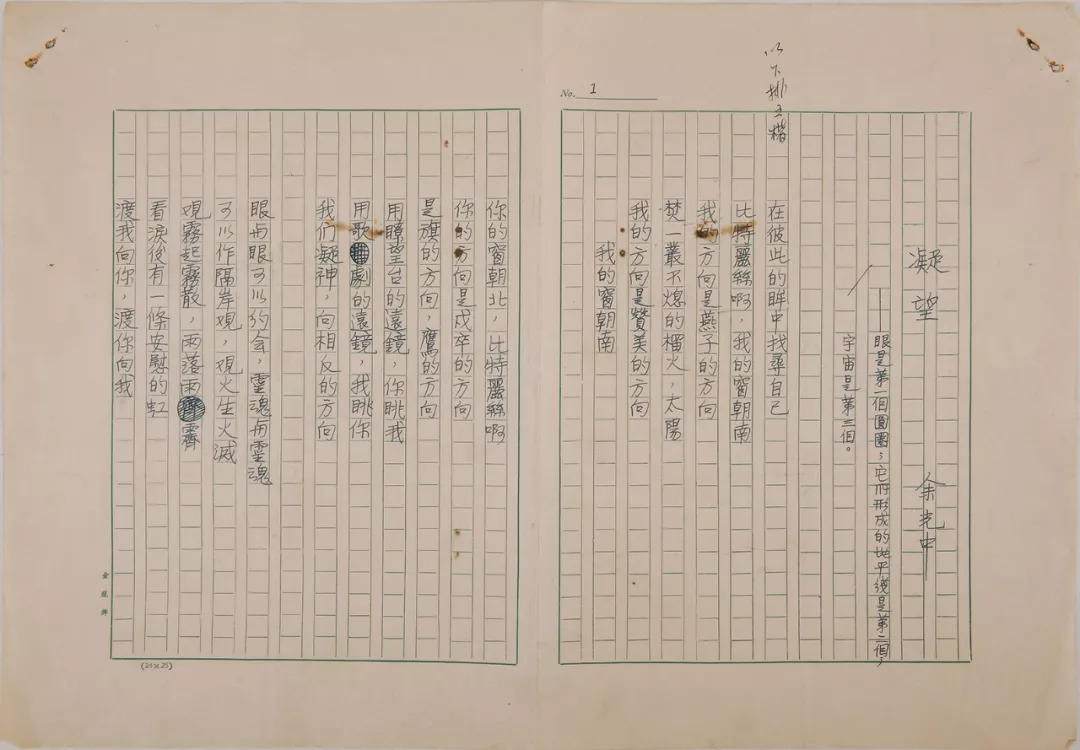 No. 1
以下排正楷
凝望
余光中
——眼是第一個圓圈；它所形成的地平線是第二個；
宇宙是第三個。
在彼此的眸中找尋自己
比特麗絲啊，我的窗朝南
我的方向是燕子的方向
焚一叢不熄的榴火，太陽
我的方向是贊美的方向
我的窗朝南
你的窗朝北，比特麗絲啊
你的方向是戍卒的方向
是旗的方向，鷹的方向
用瞭望台的遠鏡，你眺我
用歌劇的遠鏡，我眺你
我们凝神，向相反的方向
眼与眼可以約会，靈魂与靈魂
可以作隔岸观，观火生火滅
观霧起霧散，雨落雨霽
看淚後有一條安慰的虹
渡我向你，渡你向我
金龍牌
(24×25)